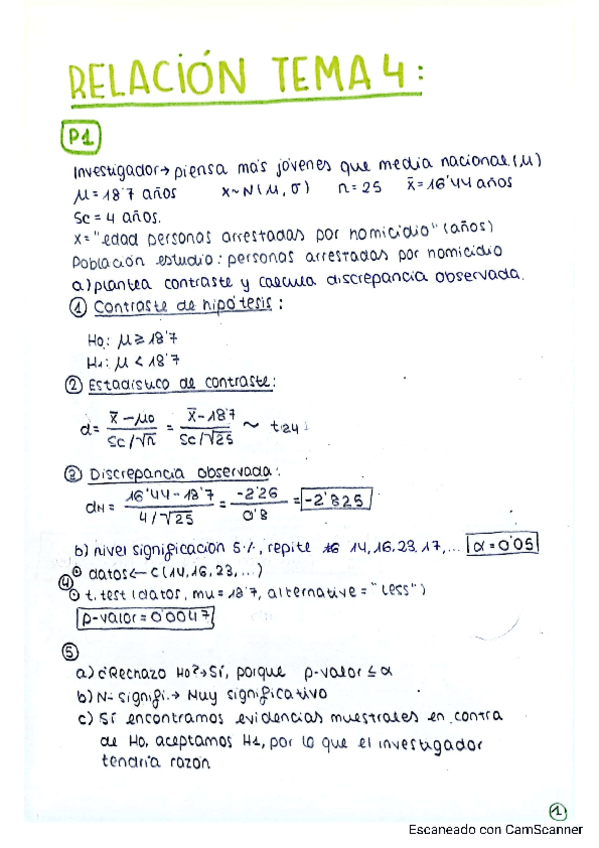 RELACIÓN TEMA 4:
P1
Investigador→ piensa más jóvenes que media nacional (μ)
μ=18'7 años x~N(μ,σ) n=25 x̄=16'44 años
Sc = 4 años.
x="edad personas arrestadas por homicidio" (años)
Población estudio: personas arrestadas por homicidio
a) plantea contraste y calcula discrepancia observada.
① Contraste de hipótesis:
H₀: μ≥18'7
H₁: μ<18'7
② Estadístico de contraste:
d= (x̄-μ₀)/(Sc/√n) = (x̄-18'7)/(Sc/√25) ~ t24
③ Discrepancia observada:
dH= (16'44-18'7)/(4/√25) = -2'26/0'8 = -2'825
b) nivel significación 5%, repite 14,16,23,17,... α=0'05
④ datos←c(14,16,23,...)
t.test(datos, mu=18'7, alternative="less")
p-valor=0'0047
⑤
a) ¿Rechazo H₀?→Sí, porque p-valor ≤ α
b) N-signifi.→ Muy significativo
c) Sí encontramos evidencias muestrales en contra
de H₀, aceptamos H₁, por lo que el investigador
tendría razón
1
Escaneado con CamScanner